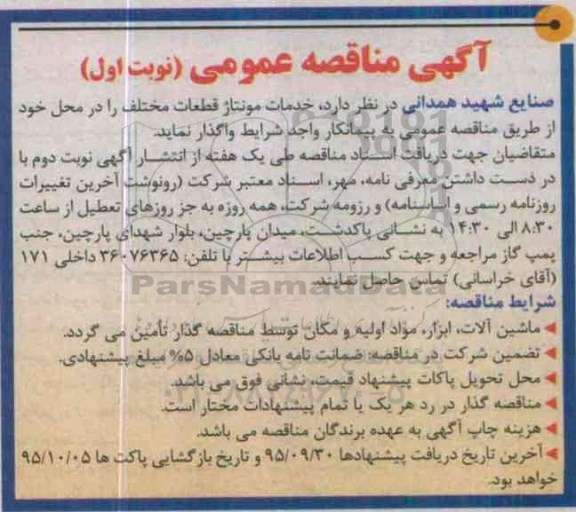 آگهی مناقصه عمومی (نوبت اول)
صنایع شهید همدانی در نظر دارد، خدمات مونتاژ قطعات مختلف را در محل خود
از طریق مناقصه عمومی به پیمانکار واجد شرایط واگذار نماید.
متقاضیان جهت دریافت اسناد مناقصه طی یک هفته از انتشار آگهی نوبت دوم با
در دست داشتن معرفی نامه، مهر، اسناد معتبر شرکت (رونوشت آخرین تغییرات
روزنامه رسمی و اساسنامه) و رزومه شرکت، همه روزه به جز روزهای تعطیل از ساعت
۸:۳۰ الی ۱۴:۳۰ به نشانی پاکدشت، میدان پارچین، بلوار شهدای پارچین، جنب
پمپ گاز مراجعه و جهت کسب اطلاعات بیشتر با تلفن: ۳۶۰۷۶۳۶۵ داخلی ۱۷۱
(آقای خراسانی) تماس حاصل نمایند.
ParsNamadData
شرایط مناقصه:
ماشین آلات، ابزار، مواد اولیه و مکان توسط مناقصه گذار تأمین می گردد.
تضمین شرکت در مناقصه: ضمانت نامه بانکی معادل ۵% مبلغ پیشنهادی.
محل تحویل پاکات پیشنهاد قیمت، نشانی فوق می باشد.
مناقصه گذار در رد هر یک یا تمام پیشنهادات مختار است.
هزینه چاپ آگهی به عهده برندگان مناقصه می باشد.
آخرین تاریخ دریافت پیشنهادها ۹۵/۰۹/۳۰ و تاریخ بازگشایی پاکت ها ۹۵/۱۰/۰۵
خواهد بود.